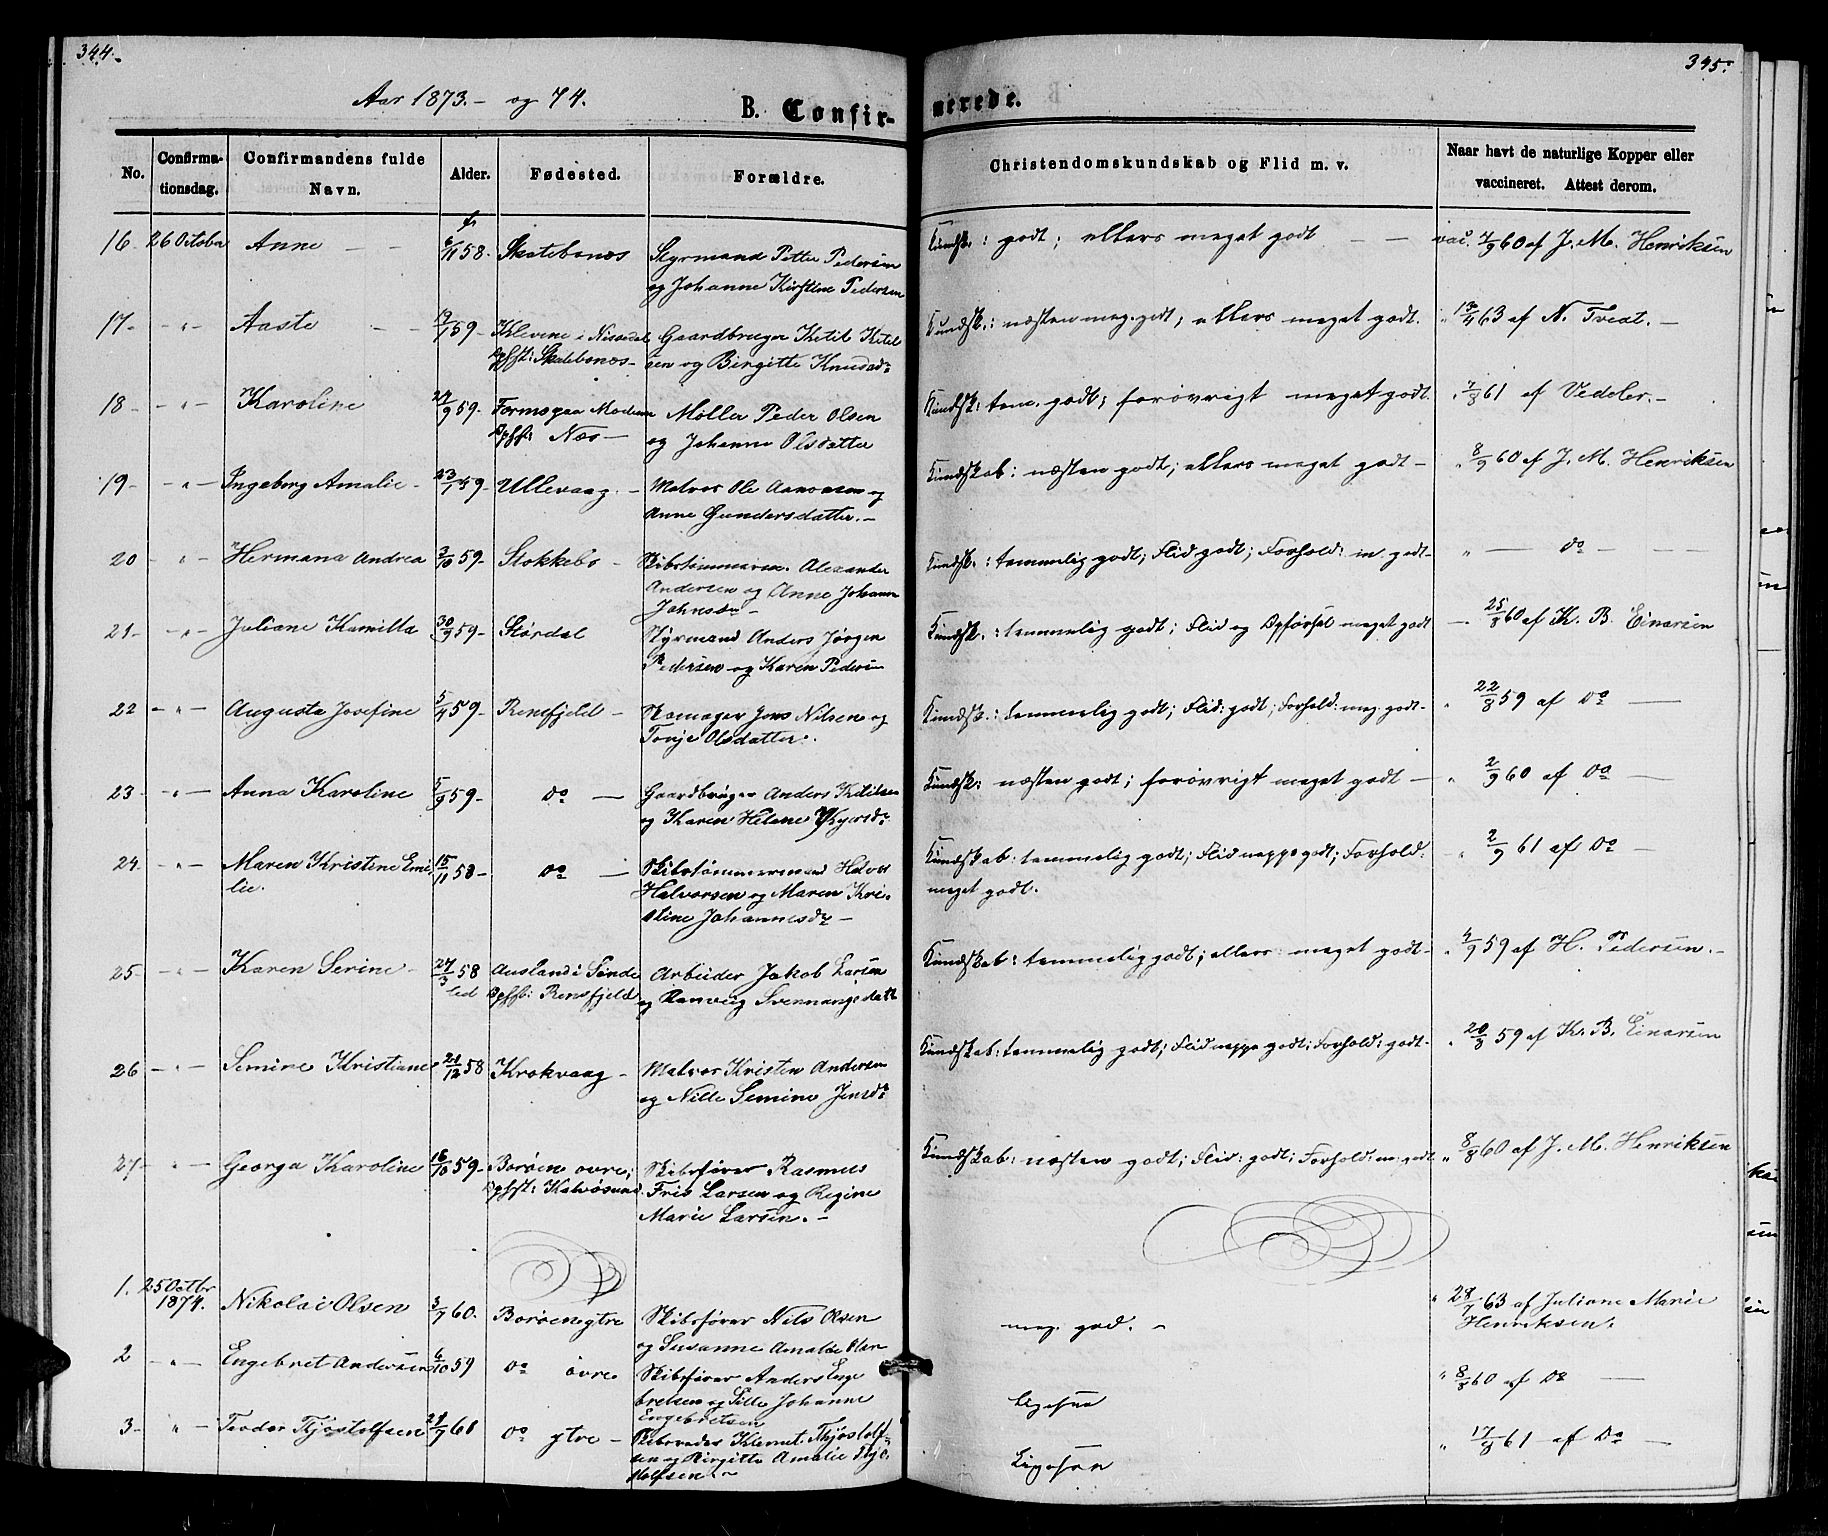 344.
Aar 1873. - og 74.
B. Confir-
No.
Confirma-
tionsdag.
Confirmandens fulde
Navn.
Alder.
Fødested.
Forældre.
16 - 26 October Anne - - f. 6/11 58. Skatebonæs
Styrmand Petter Pedersen
og Johanne Kirstine Pedersen
17 - - " - Aaste - - 59 - Klevene i Nissedal
Opfst: Skatebonæs -
Gaardbruger Ketil Ketil
sen og Birgitte Knudsd:
18 - - " - Karoline 59 - Formo paa Modum
Opfst: Næs -
Møller Peder Olsen
og Johanne Olsdatter
19 - - " - Ingeborg Amalie - 23/1 59 - Ullevaag. -
Matros Ole Aanonsen og
Anne Gundersdatter. -
20 - " - Hermana Andrea 3/10 59 - Stokkebo -
Skibstømmerm. Alexander
Andersen og Anne Johanne
Johnsdr -
21 - - " - Juliane Kamilla 30/9 59 - Stördal
Styrmand Anders Jørgen
Pedersen og Karen Peders
22 - " - Augusta Josefine 5/4 59 - Rensfjeld -
Skomager Jens Nilsen og
Tonje Olsdatter.
23 - - " - Anna Karoline 5/9 59 - do -
Gaardbruger Anders Ketilsen
og Karen Helene
24. - " - Maren Kristine Emi
lie.
15/11 58 - do -
Skibstømmermand Halvor
Halvorsen og Maren Kri-
stine Johannesdr -
25 - - " - Karen Serine - 27/3 58 Ausland i Sønde
led Opfst: Rensfjeld
Arbeider Jakob Larsen
og Ranveig
26 - " - Semine Kristiane 21/12 58 Krokvaag -
Matros Kristen Andersen
og Nille Semine Jensdr
27 - " - Georga Karoline 16/10 59 - Borøen øvre;
Opfst: Kalvøsund
Skibsfører Rasmus
Friis Larsen og Regine
Marie Larsen. -
1. 25 Octbr
1874. Nikolai Olsen 3/7 60. Borøen ytre
Skibsfører Nils Olsen
og Susanne Amalie Olsen
2 - " - Engebret Andersen 6/10 59 do øvre
Skibsfører Anders Enge
bretsen og Sille Johanne
Engebretsen
3 - " - Teodor Thjostolfsen 60 do ytre -
Skibsreder Klemet Thjostolf-
sen og Birgitte Amalie Thjo
stolfsen -
345.
merede.
Christendomskundskab og Flid m. v.
Naar havt de naturlige Kopper eller
vaccineret. Attest derom.
Kundsk.: godt; ellers meget godt - - vac. 60 af J. M. Henriksen
Kundsk.: næsten meg. godt; ellers meget godt. " 63 af N. Tveit. -
Kundsk: tem. godt; forøvrigt meget godt. " 61 af Vedeler. -
Kundskab: næsten godt; ellers meget godt - " 8/9 60 af J. M. Henriksen
Kundsk.: temmelig godt; Flid godt; Forhold: m. godt - " - do - -
Kundsk.: temmelig godt; Flid og Opførsel meget godt - 25/8 60 af K. B. Einarsen
Kundsk.: temmelig godt; Flid: godt; Forhold: meg. godt - " 22/8 59 af do -
Kundsk: næsten godt; forøvrigt meget godt - " 2/9 60 af do -
Kundskab: temmelig godt; Flid neppe godt; Forhold:
meget godt.
- " 2/9 61 af do -
Kundskab: temmelig godt; ellers meget godt - " 59 af H. Pedersen. -
Kundskab: temmelig godt; Flid neppe godt; Forhold: godt - " 20/8 59 af K. B. Einarsen
Kundskab: næsten godt; Flid: godt; Forhold: m. godt " 8/8 60 af J. M. Henriksen
meg. god. - " 28/7 63 af Juliane Marie
Henriksen.
Ligesaa " 8/8 60 af do -
Ligesaa " 17/8 61 af do -